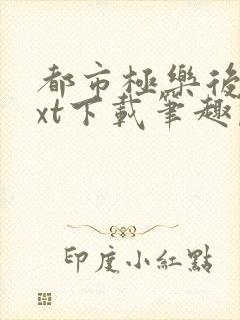 都市極樂後
xt下載筆趣
印度小紅點